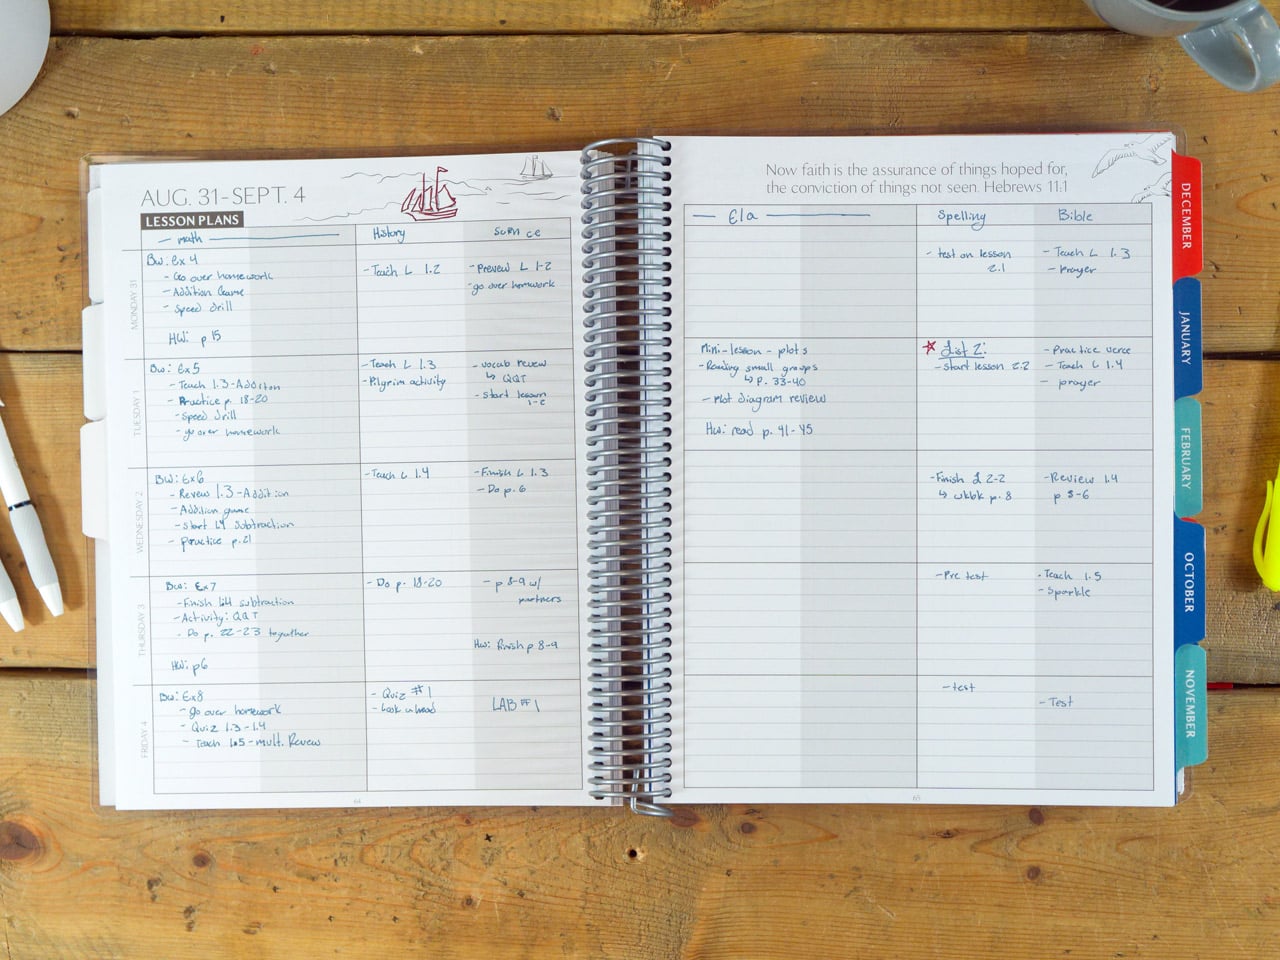 AUG. 31-SEPT. 4
LESSON PLANS
math
History
Science
MONDAY 31
BW: Ex 4
- Go over homework
- Addition Game
- Speed drill
HW: p 15
- Teach L 1.2
- Preveiw L 1-2
- go over homework
TUESDAY 1
BW: Ex5
- Teach 1.3-Addition
- Practice p. 18-20
- Speed drill
- go over homework
- Teach L 1.3
- Pilgrim activity
- vocab review
↳ QQT
- start lesson
1-2
WEDNESDAY 2
BW: Ex6
- Review 1.3-Addition
- Addition game
- start L4 Subtraction
- Practice p.21
- Teach L 1.4
- Finish L 1.3
- Do p. 6
THURSDAY 3
BW: Ex7
- Finish L4 subtraction
- Activity: QQT
- Do p. 22-23 together
HW: p6
- Do p. 18-20
- p 8-9 w/
partners
HW: Finish p 8-9
FRIDAY 4
BW: Ex8
- go over homework
- Quiz 1.3-1.4
- Teach 1.5-mult. Review
- Quiz #1
- Look ahead
LAB #1
64
Now faith is the assurance of things hoped for,
the conviction of things not seen. Hebrews 11:1
Ela
Spelling
Bible
- test on lesson
2.1
- Teach L 1.3
- Prayer
Mini-lesson - plots
- Reading small groups
↳ P. 33-40
- Plot diagram review
HW: read p. 41-45
List 2:
- start lesson 2.2
- Practice verse
- Teach L 1.4
- prayer
- Finish L 2-2
↳ wkbk p. 8
- Review 1.4
p 5-6
- Pre test
- Teach 1.5
- Sparkle
- test
- Test
65
DECEMBER
JANUARY
FEBRUARY
OCTOBER
NOVEMBER